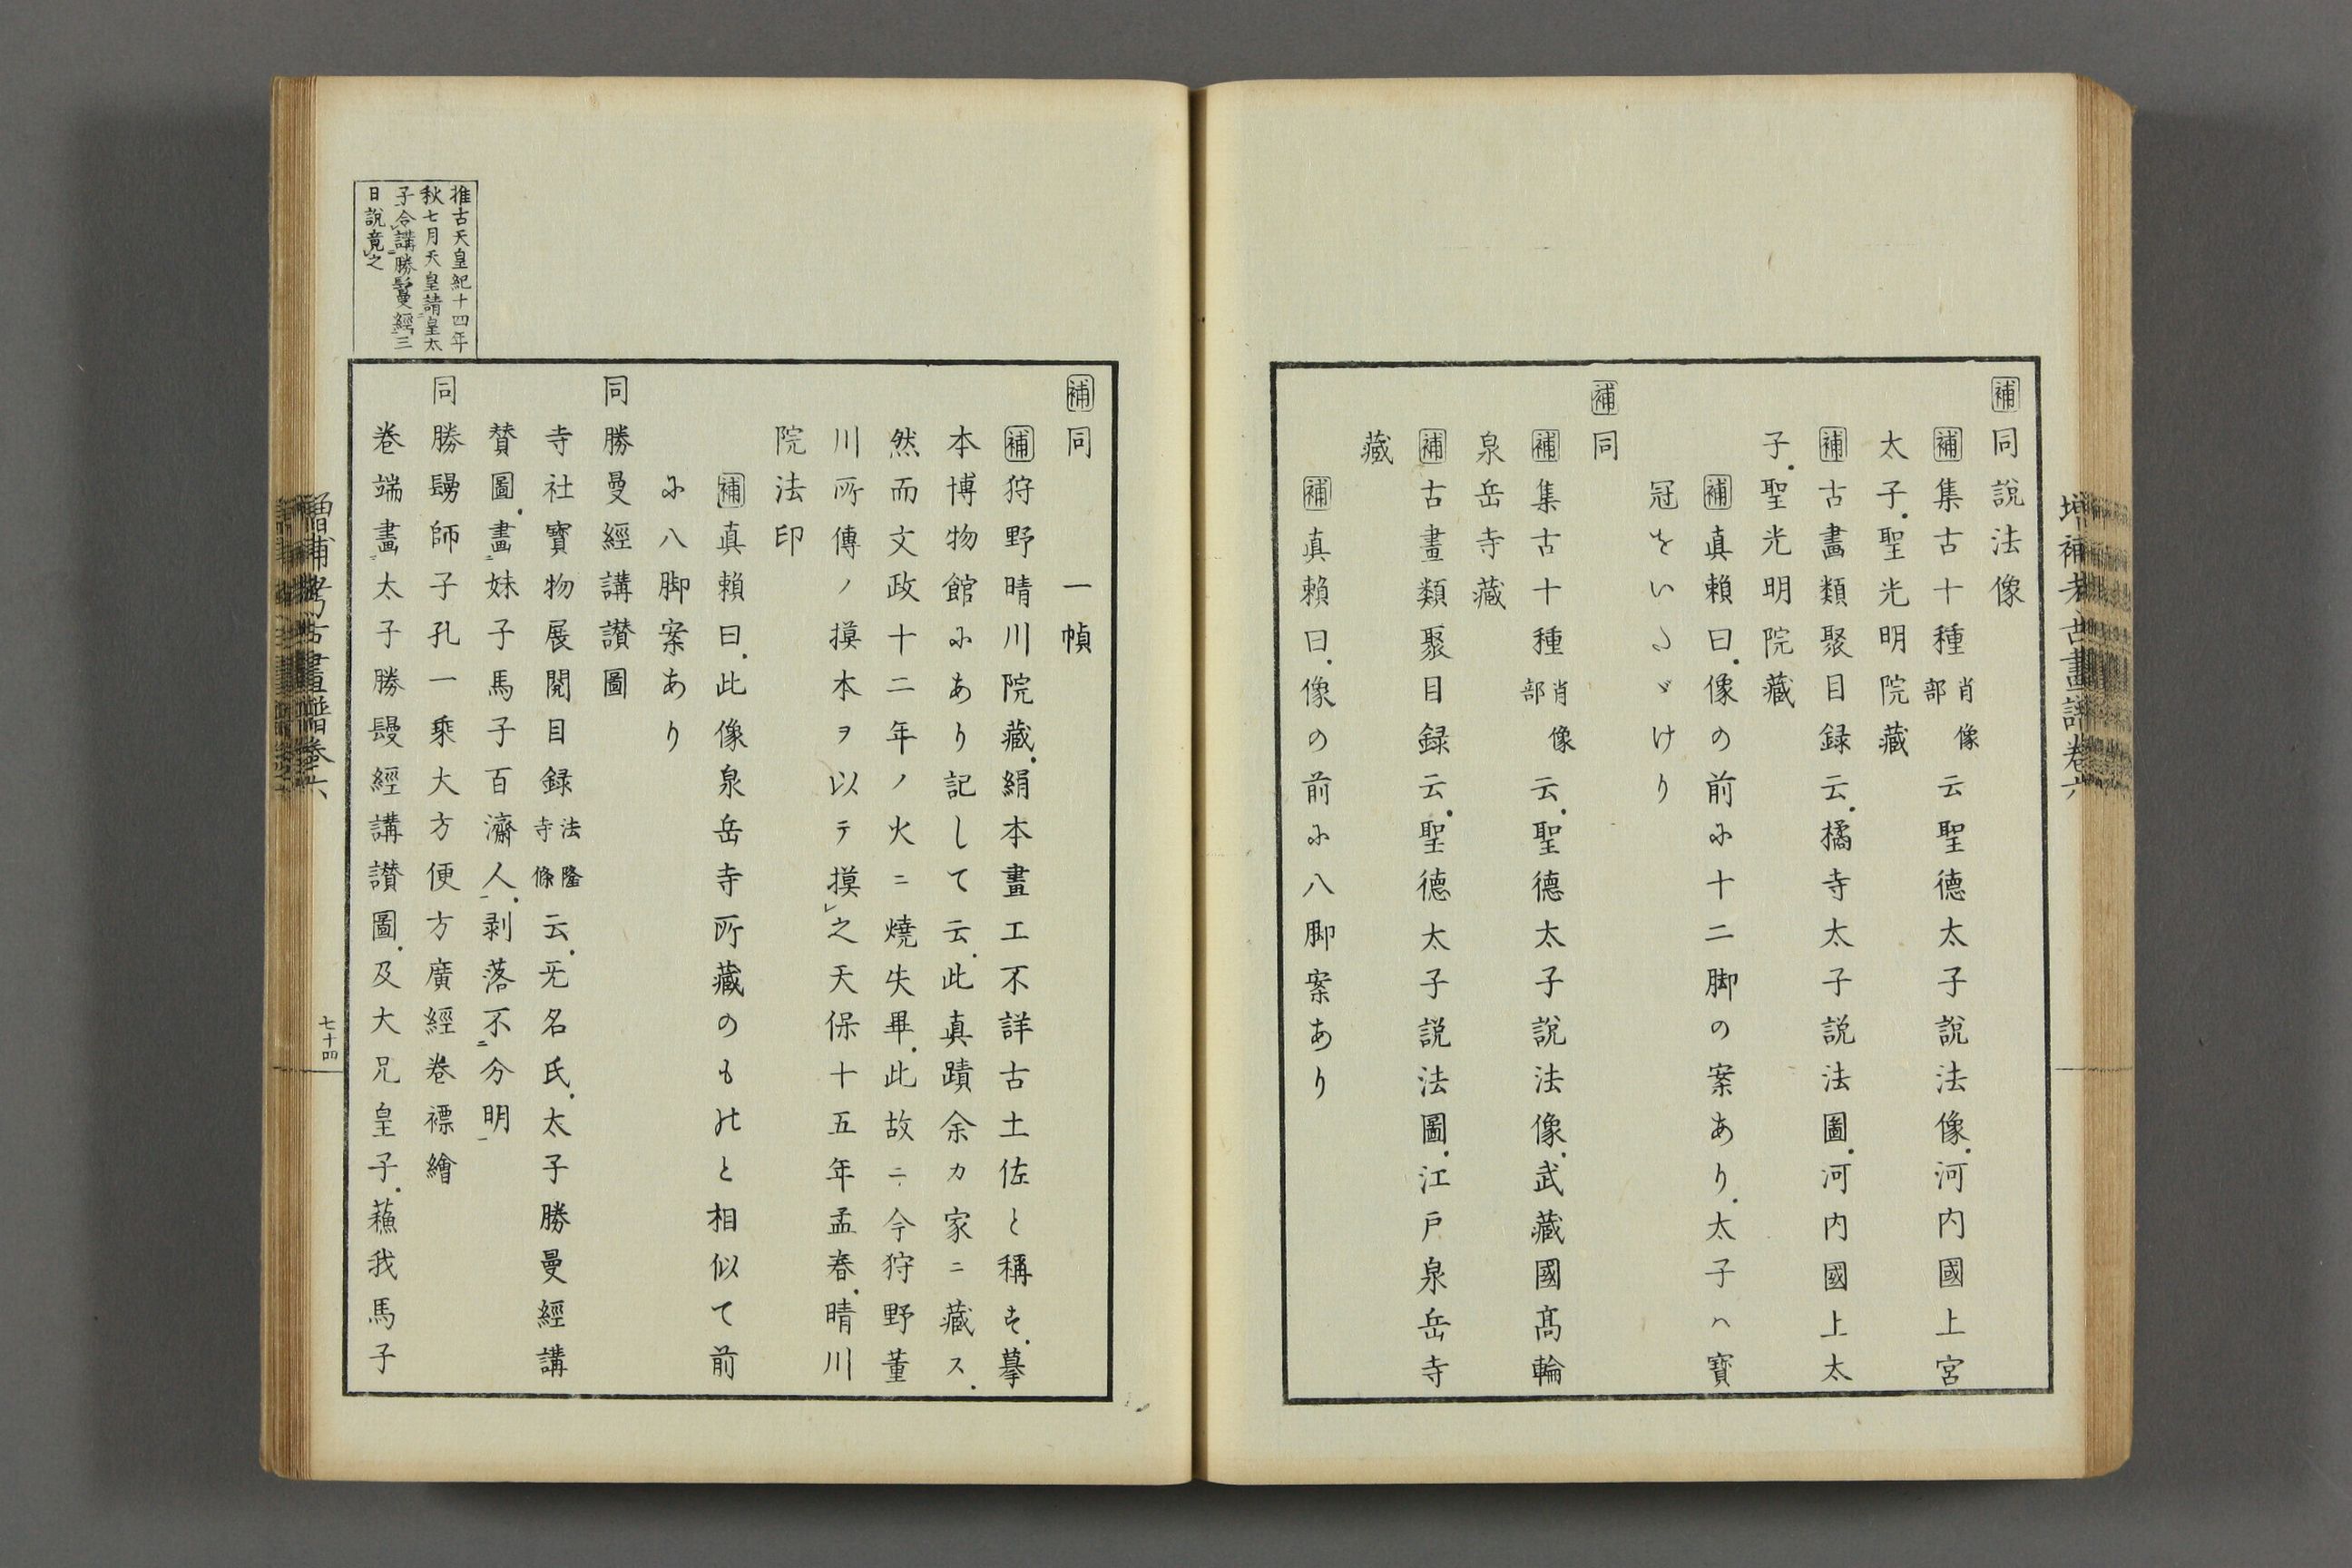 増補考古畫譜卷六
補同說法像
補集古十種肖像部云聖德太子說法像.河內國上宮
太子.聖光明院藏
補古畫類聚目録云.橘寺太子説法圖.河内國上太
子.聖光明院藏
補眞賴曰.像の前に十二脚の案あり.太子ハ寳
冠をいたゞけり
補同
補集古十種肖像部云.聖德太子說法像.武藏國髙輪
泉岳寺藏
補古畫類聚目録云.聖德太子説法圖.江戸泉岳寺
藏
補眞賴曰.像の前に八脚案あり
補同　一幀
補狩野晴川院藏.絹本畫工不詳古土佐と稱す.摹
本博物館にあり記して云.此眞蹟余カ家ニ藏ス.
然而文政十二年ノ火ニ燒失畢.此故ニ今狩野董
川所傳ノ摸本ヲ以テ摸レ之天保十五年孟春.晴川
院法印
補眞賴曰.此像泉岳寺所藏のものと相似て前
に八脚案あり
同勝曼經講讃圖
寺社寳物展閲目録法隆寺條云.旡名氏.太子勝曼經講
賛圖.畫二妹子馬子百濟人一.剥落不二分明一
同勝鬘師子孔一乘大方便方廣經卷褾繪
卷端畫二太子勝鬘經講讃圖.及大兄皇子.蘓我馬子
推古天皇紀十四年
秋七月天皇請二皇太
子一令レ講二勝鬘經一三
日說竟レ之
増補考古畫譜卷六
七十四